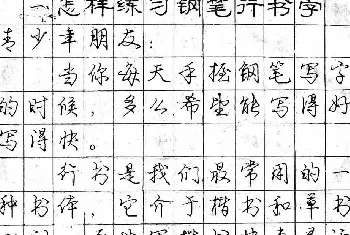 怎样练习钢笔行书字
青少年朋友：
当你每天手握钢笔写字
的时候，多么希望能写得好
写得快。
行书是我们最常用的一
种书体，它介于楷书和草书